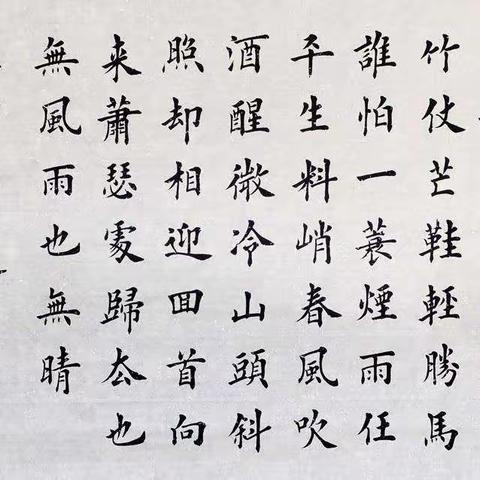 竹仗芒鞋輕勝馬
誰怕一蓑煙雨任
平生料峭春風吹
酒醒微冷山頭斜
照却相迎回首向
来蕭瑟處歸去也
無風雨也無晴